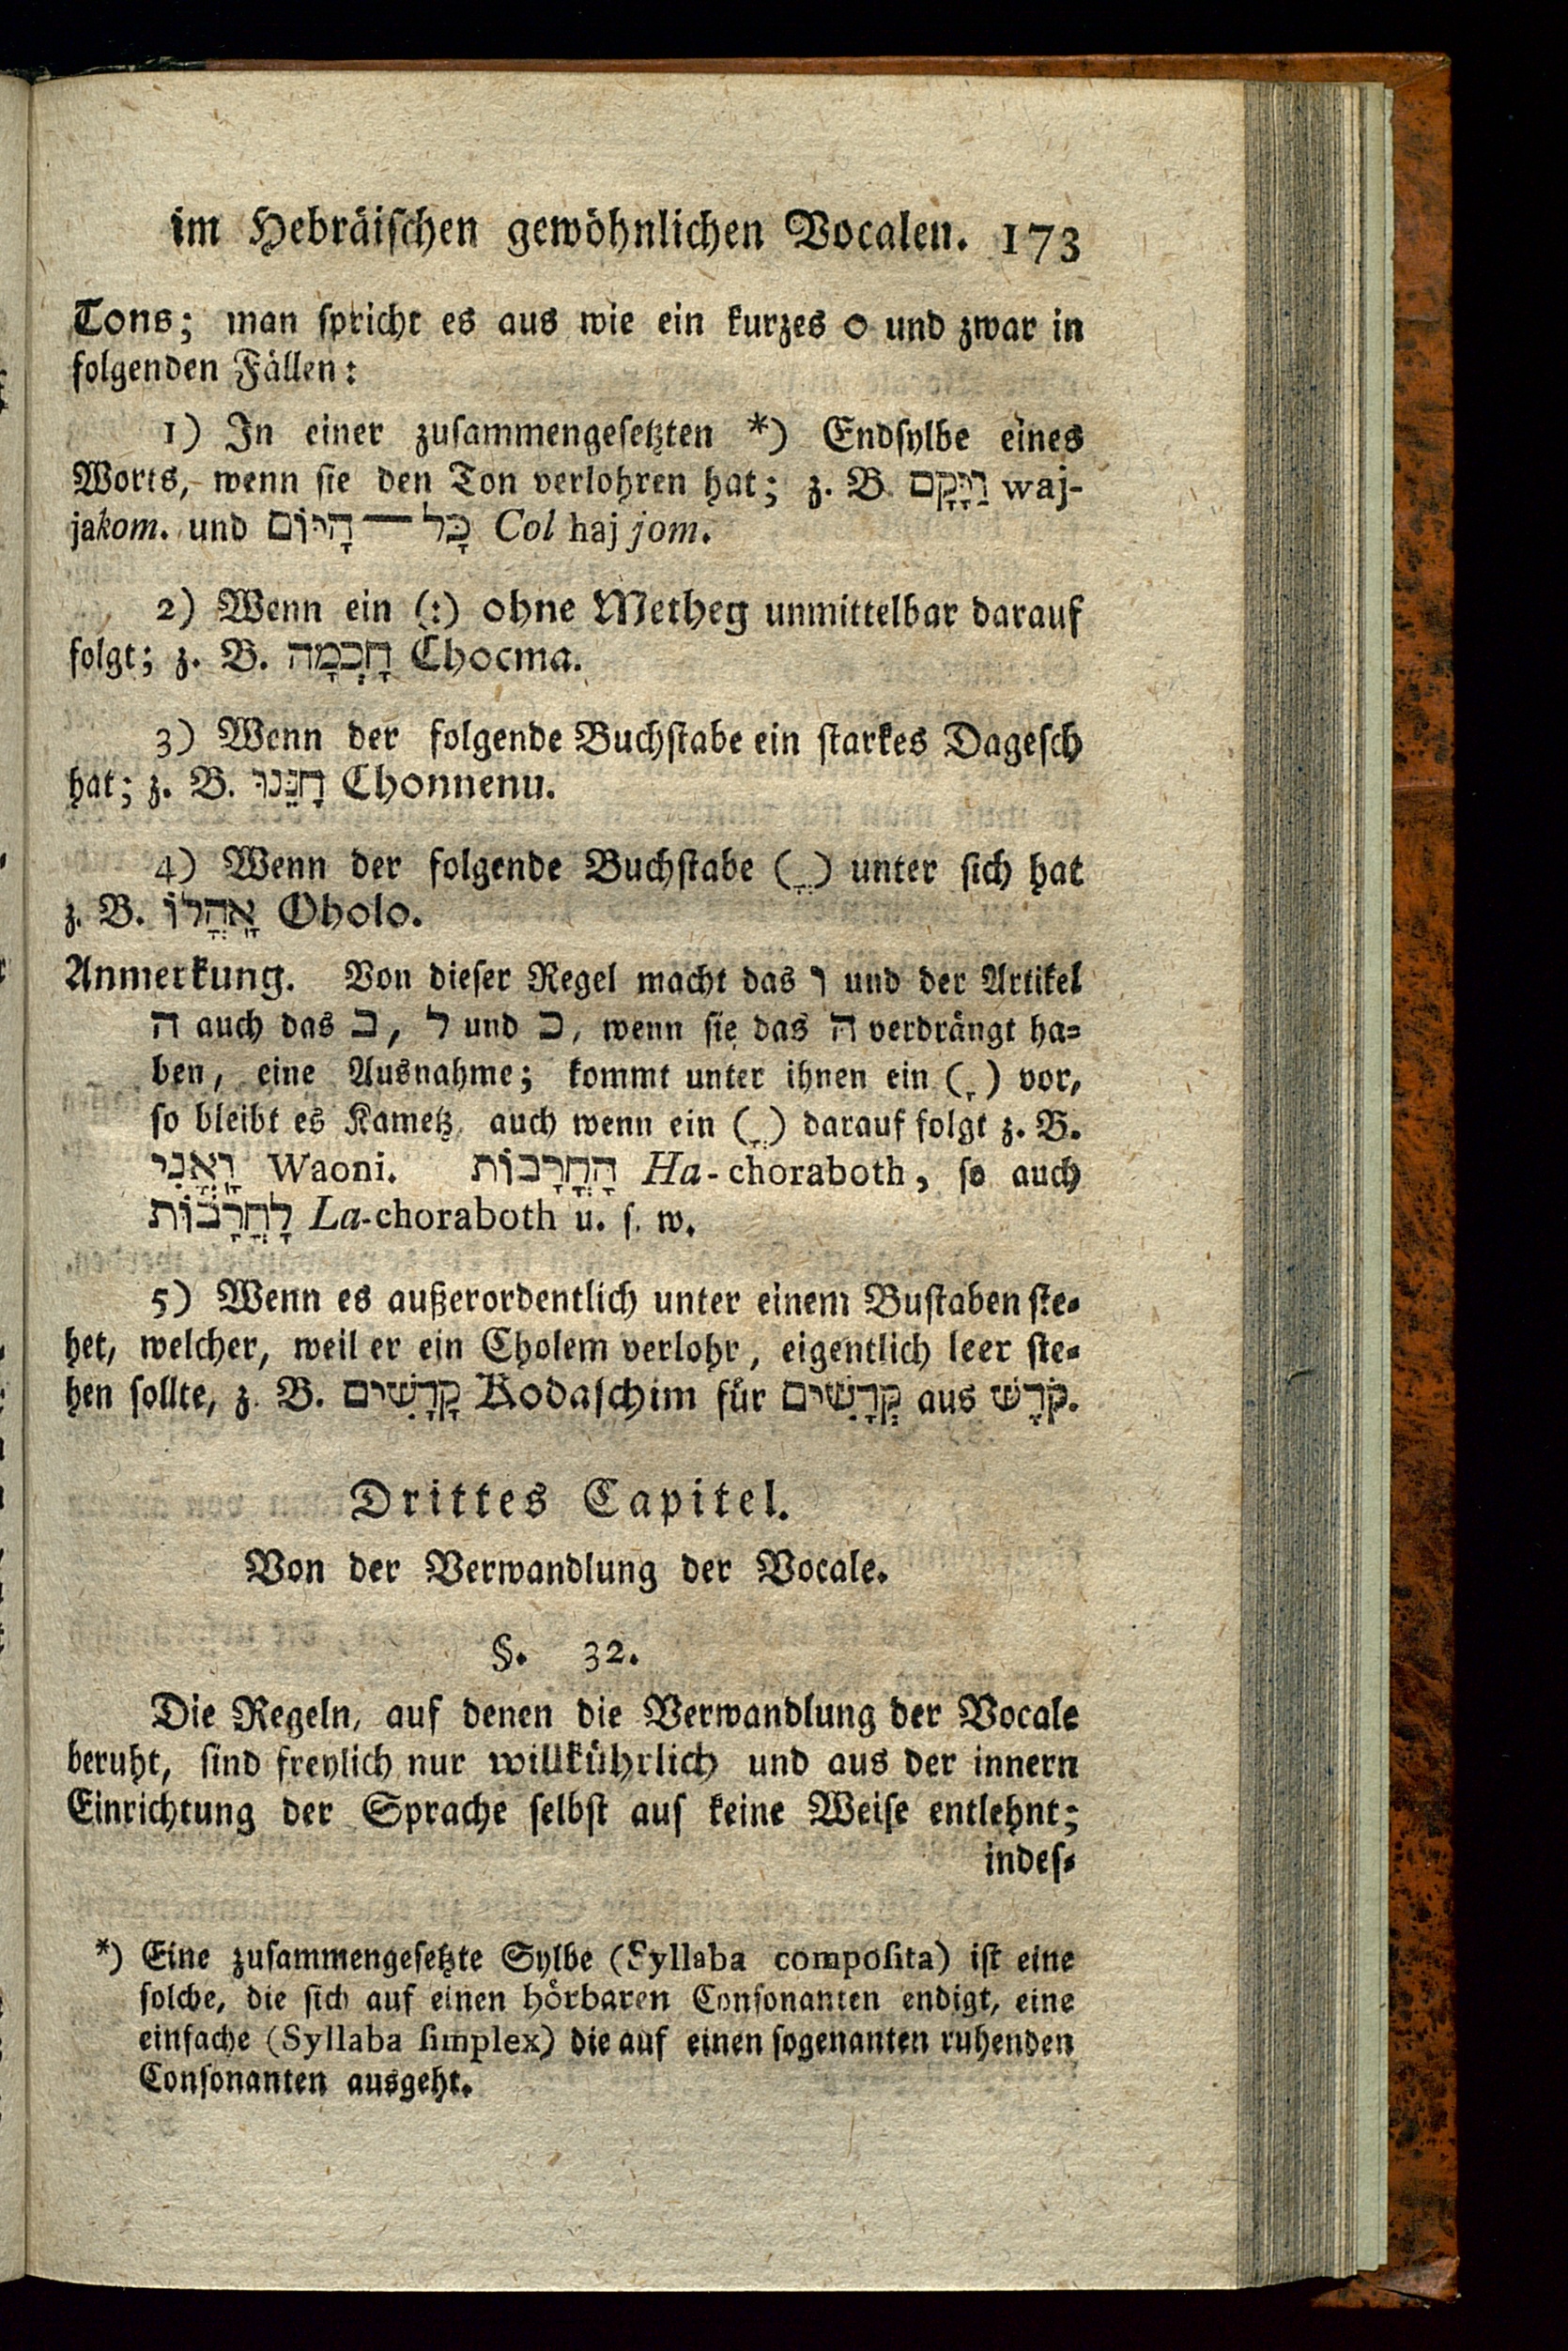 im Hebräischen gewöhnlichen Vocalen. 173
Tons; man spricht es aus wie ein kurzes o und zwar in
folgenden Fällen:
1) In einer zusammengesetzten *) Endsylbe eines
Worts, wenn sie den Ton verlohren hat; z. B. וַיָּקָם waj-
jakom. und כָּל — הָיּוֹם Col haj jom.
2) Wenn ein (:) ohne Metheg unmittelbar darauf
folgt; z. B. חָכְמָה Chocma.
3) Wenn der folgende Buchstabe ein starkes Dagesch
hat; z. B. חָנֵּנוּ Chonnenu.
4) Wenn der folgende Buchstabe (ֳ) unter sich hat
z. B. אָהֳלוֹ Oholo.
Anmerkung. Von dieser Regel macht das ו und der Artikel
ה auch das ב, ל und כ, wenn sie das ה verdrängt ha-
ben, eine Ausnahme; kommt unter ihnen ein (ָ) vor,
so bleibt es Kametz, auch wenn ein (ֳ) darauf folgt z. B.
וָאֳנִי Waoni. הָחֳרָבוֹת Ha-choraboth, so auch
לָחֳרָבוֹת La-choraboth u. s. w.
5) Wenn es außerordentlich unter einem Bustaben ste-
het, welcher, weil er ein Cholem verlohr, eigentlich leer ste-
hen sollte, z. B. קָדָשִׁים Kodaschim für קְדָשִׁים aus קֹדָשׁ.
Drittes Capitel.
Von der Verwandlung der Vocale.
§. 32.
Die Regeln, auf denen die Verwandlung der Vocale
beruht, sind freylich nur willkührlich und aus der innern
Einrichtung der Sprache selbst auf keine Weise entlehnt;
indes-
*) Eine zusammengesetzte Sylbe (Syllaba composita) ist eine
solche, die sich auf einen hörbaren Consonanten endigt, eine
einfache (Syllaba simplex) die auf einen sogenanten ruhenden
Consonanten ausgeht.